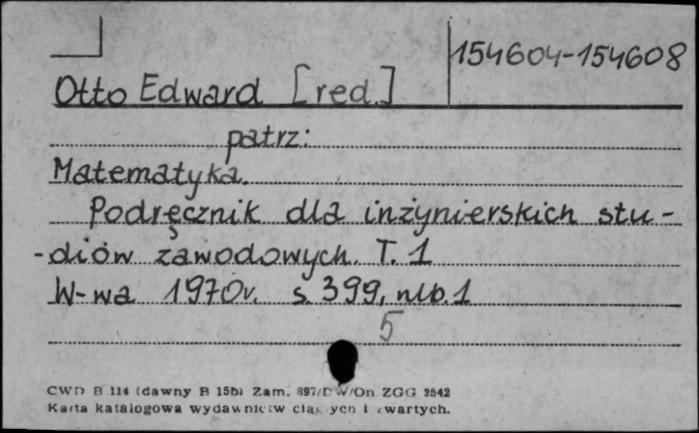 154604-154608
Otto Edward [red.]
patrz:
Matematyka.
Podręcznik dla inżynierskich stu-
-diów zawodowych. T. 1
W-wa 1970r. s. 399, nlb. 1
5
CWD B 114 (dawny B 15b) Zam. 897/DW/On ZGG 2542
Karta katalogowa wydawnictw ciągłych i zwartych.